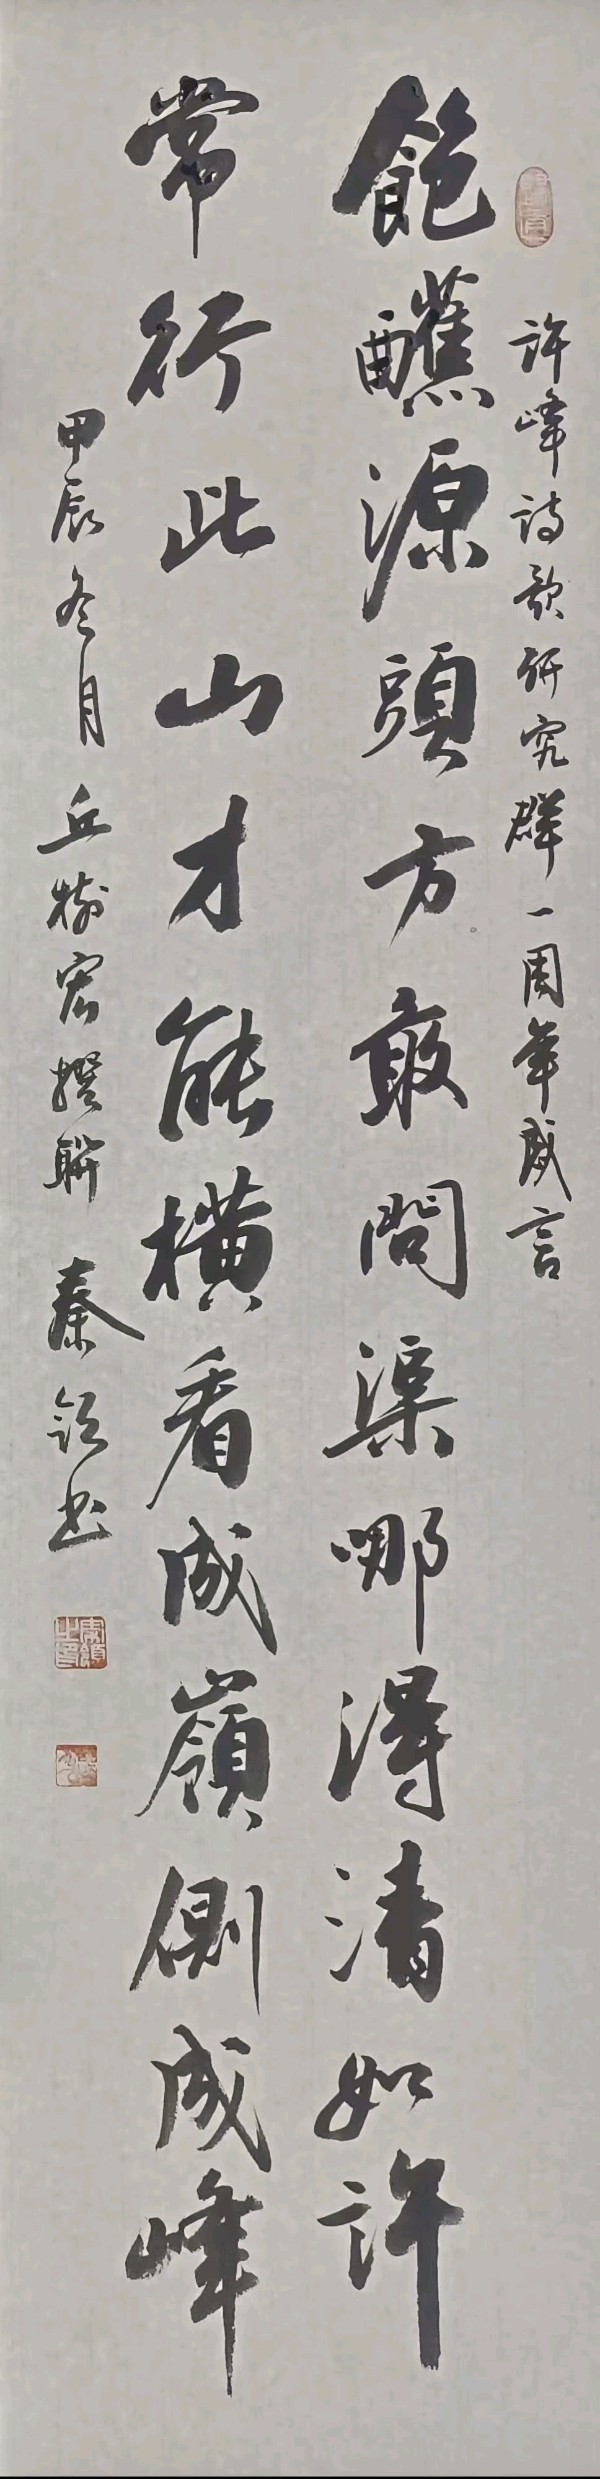 許峰詩歌研究群一周年感言
飽蘸源頭方敢問渠哪得清如許
常行此山才能橫看成嶺側成峰
甲辰冬月 丘樹宏撰聯 秦領书